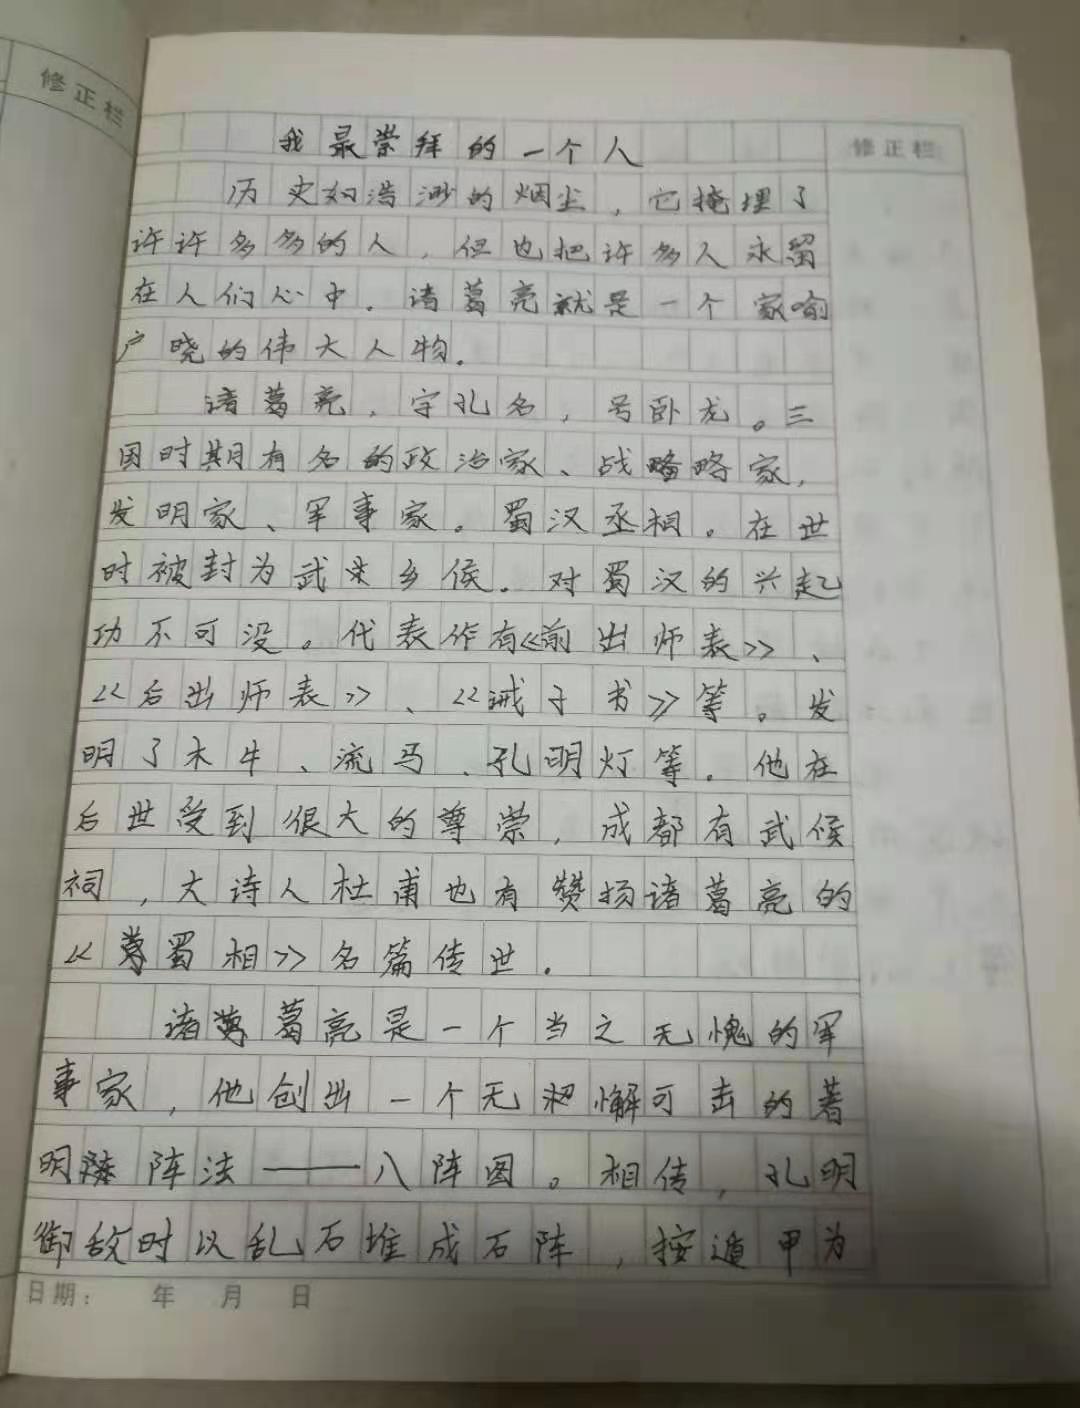 修正栏
修正栏
我最崇拜的一个人
历史如浩渺的烟尘，它掩埋了
许许多多的人，但也把许多人永留
在人们心中。诸葛亮就是一个家喻
户晓的伟大人物。
诸葛亮，字孔名，号卧龙。三
国时期有名的政治家、战略家，
发明家、军事家。蜀汉丞相。在世
时被封为武乡侯。对蜀汉的兴起
功不可没。代表作有《前出师表》、
《后出师表》、《诫子书》等。发
明了木牛、流马、孔明灯等。他在
后世受到很大的尊崇，成都有武候
祠，大诗人杜甫也有赞扬诸葛亮的
《蜀相》名篇传世。
诸葛亮是一个当之无愧的军
事家，他创出一个无懈可击的著
明阵法——八阵图。相传，孔明
御敌时以乱石堆成石阵，按遁甲为
日期： 年 月 日